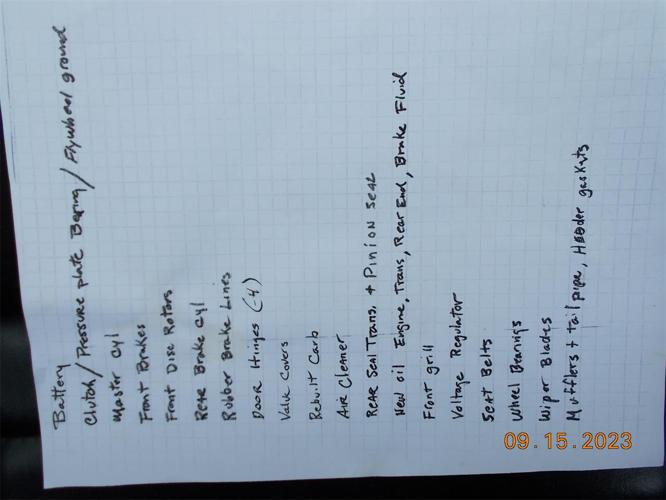 Battery
Clutch / Pressure plate Bearing / Flywheel ground
Master Cyl
Front Brakes
Front Disc Rotors
Rear Brake Cyl
Rubber Brake Lines
Door Hinges (-4)
Valve Covers
Rebuilt Carb
Air Cleaner
Rear Seal Trans, + Pinion Seal
New oil Engine, Trans, Rear End, Brake Fluid
Front grill
Voltage Regulator
Seat Belts
Wheel Bearings
Wiper Blades
Mufflers + tail pipe, Header gaskets
09.15.2023